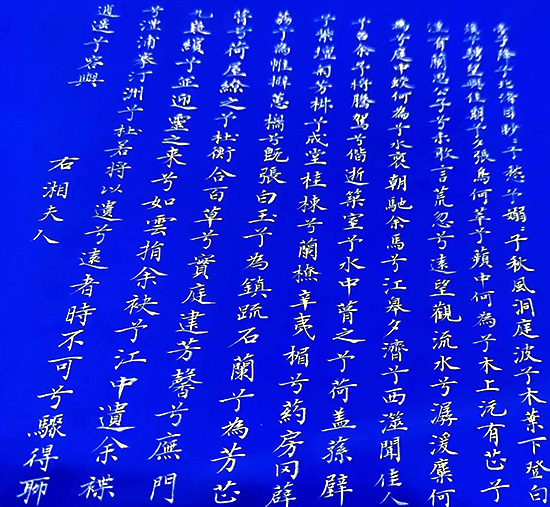 帝子降兮北渚目眇々兮愁予嫋々兮秋風洞庭波兮木葉下登白
薠兮騁望與佳期兮夕張鳥何萃兮蘋中何為兮木上沅有芷兮
澧有蘭思公子兮未敢言荒忽兮遠望觀流水兮潺湲麋何
為兮庭中蛟何為兮水裔朝馳余馬兮江皋夕濟兮西澨聞佳人
兮召余兮將騰駕兮偕逝築室兮水中葺之兮荷盖蓀壁
兮紫壇匊芳椒兮成堂桂棟兮蘭橑辛夷楣兮葯房罔薜
荔兮為帷擗蕙櫋兮既張白玉兮為鎮疏石蘭兮為芳芷
葺兮荷屋繚之兮杜衡合百草兮實庭建芳馨兮廡門
九嶷繽兮並迎靈之来兮如雲捐余袂兮江中遺余褋
兮澧浦搴汀洲兮杜若將以遺兮遠者時不可兮驟得聊
逍遥兮容與
右湘夫人